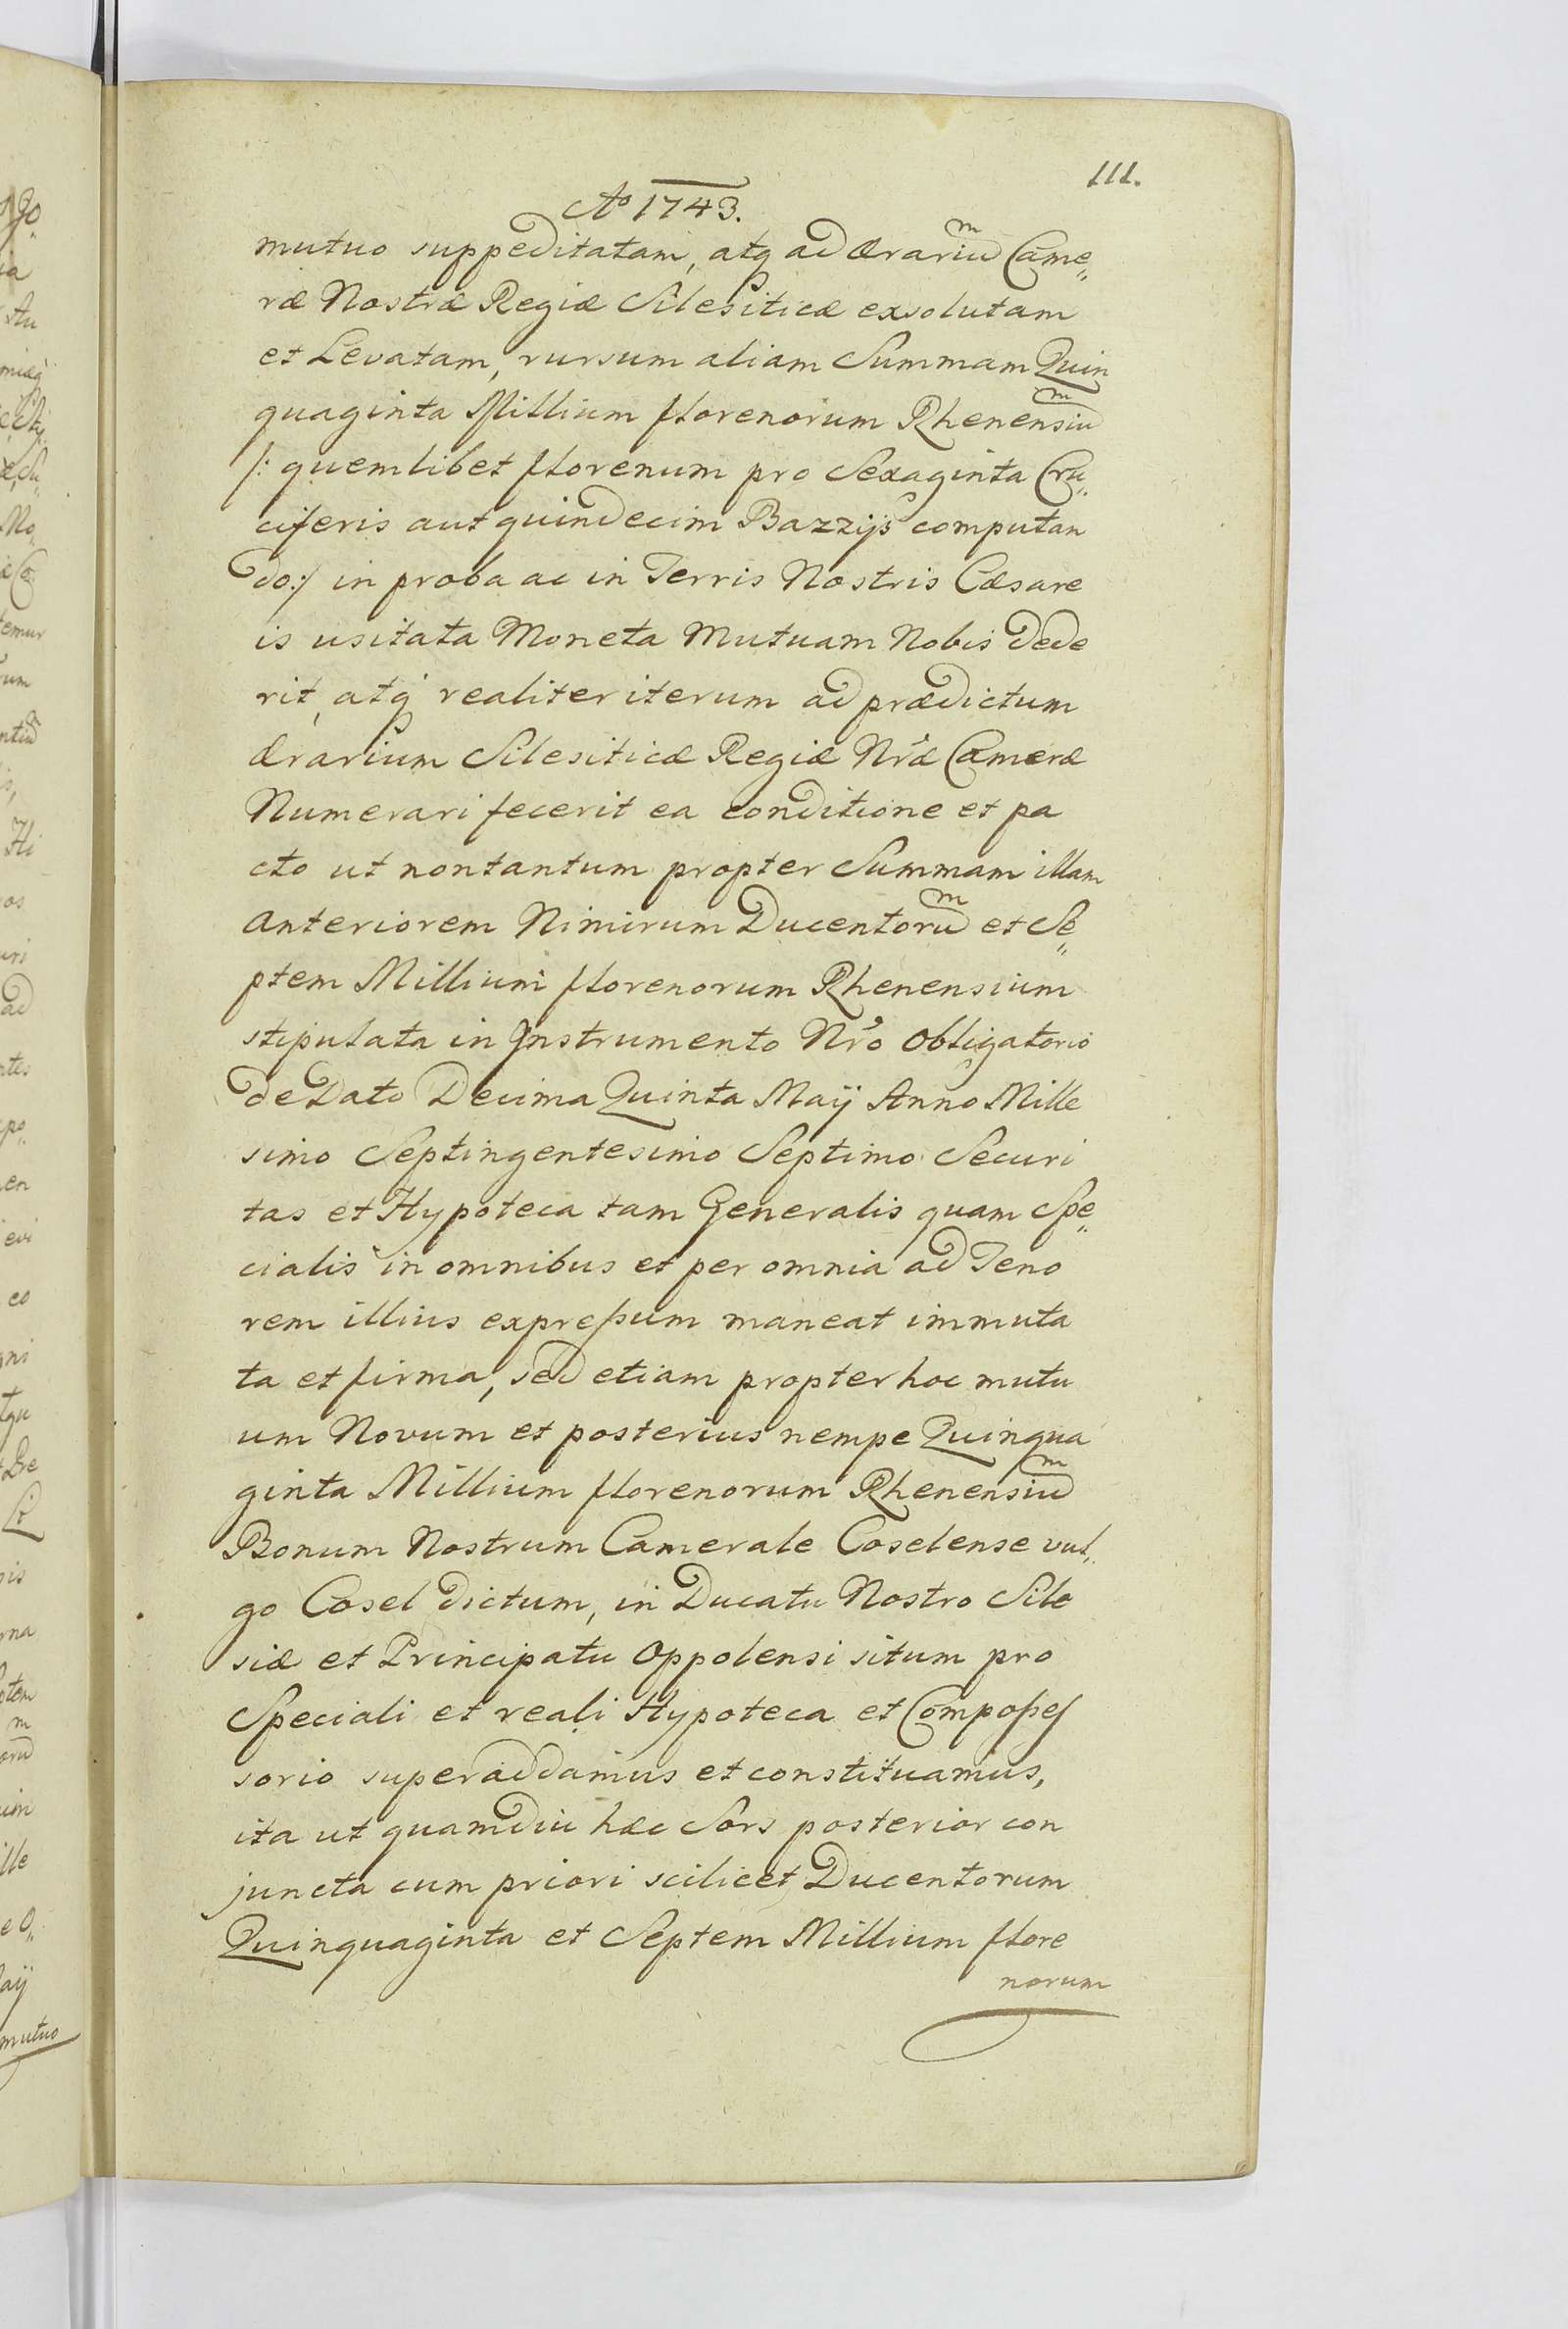 111.
Aº 1743.
mutuo suppeditatam, atq ad Ærariũm Came„
ræ Nostræ Regiæ Silesiticæ exsolutam
et Levatam, rursum aliam Summam Quin
quaginta Millium florenorum Rhenensiũm
/: quemlibet florenum pro Sexaginta Cru„
ciferis aut quindecim Bazzijs computan
do:/ in proba ac in Terris Nostris Cæsare
is usitata Moneta Mutuam Nobis dede
rit, atq realiter iterum ad prædictum
Ærarium Silesiticæ Regiæ Nr̃æ Cameræ
Numerari fecerit ea conditione et pa
cto ut non tantum propter Summam illam
anteriorem Nimirum Ducentorũm et Se„
ptem Millium florenorum Rhenensium
stipulata in Instrumento Nr̃o obligatorio
de Dato Decima Quinta Maÿ Anno Mille
simo Septingentesimo Septimo Securi
tas et Hypoteca tam Generalis quam Spe„
cialis in omnibus et per omnia ad Teno
rem illius expreſsum maneat immuta
ta et firma, sed etiam propter hoc mutu
um Novum et posterius nempe Quinqua
ginta Millium florenorum Rhenensiũm
Bonum Nostrum Camerale Coselense vul„
go Cosel dictum, in Ducatu Nostro Sile
siæ et Principatu Oppolensi situm pro
Speciali et reali Hypoteca et Compoſseſ
sorio superaddamus et constituamus,
ita ut quamdiu hæc Sors posterior con
juncta cum priori scilicet Ducentorum
Quinquaginta et Septem Millium flore
norum